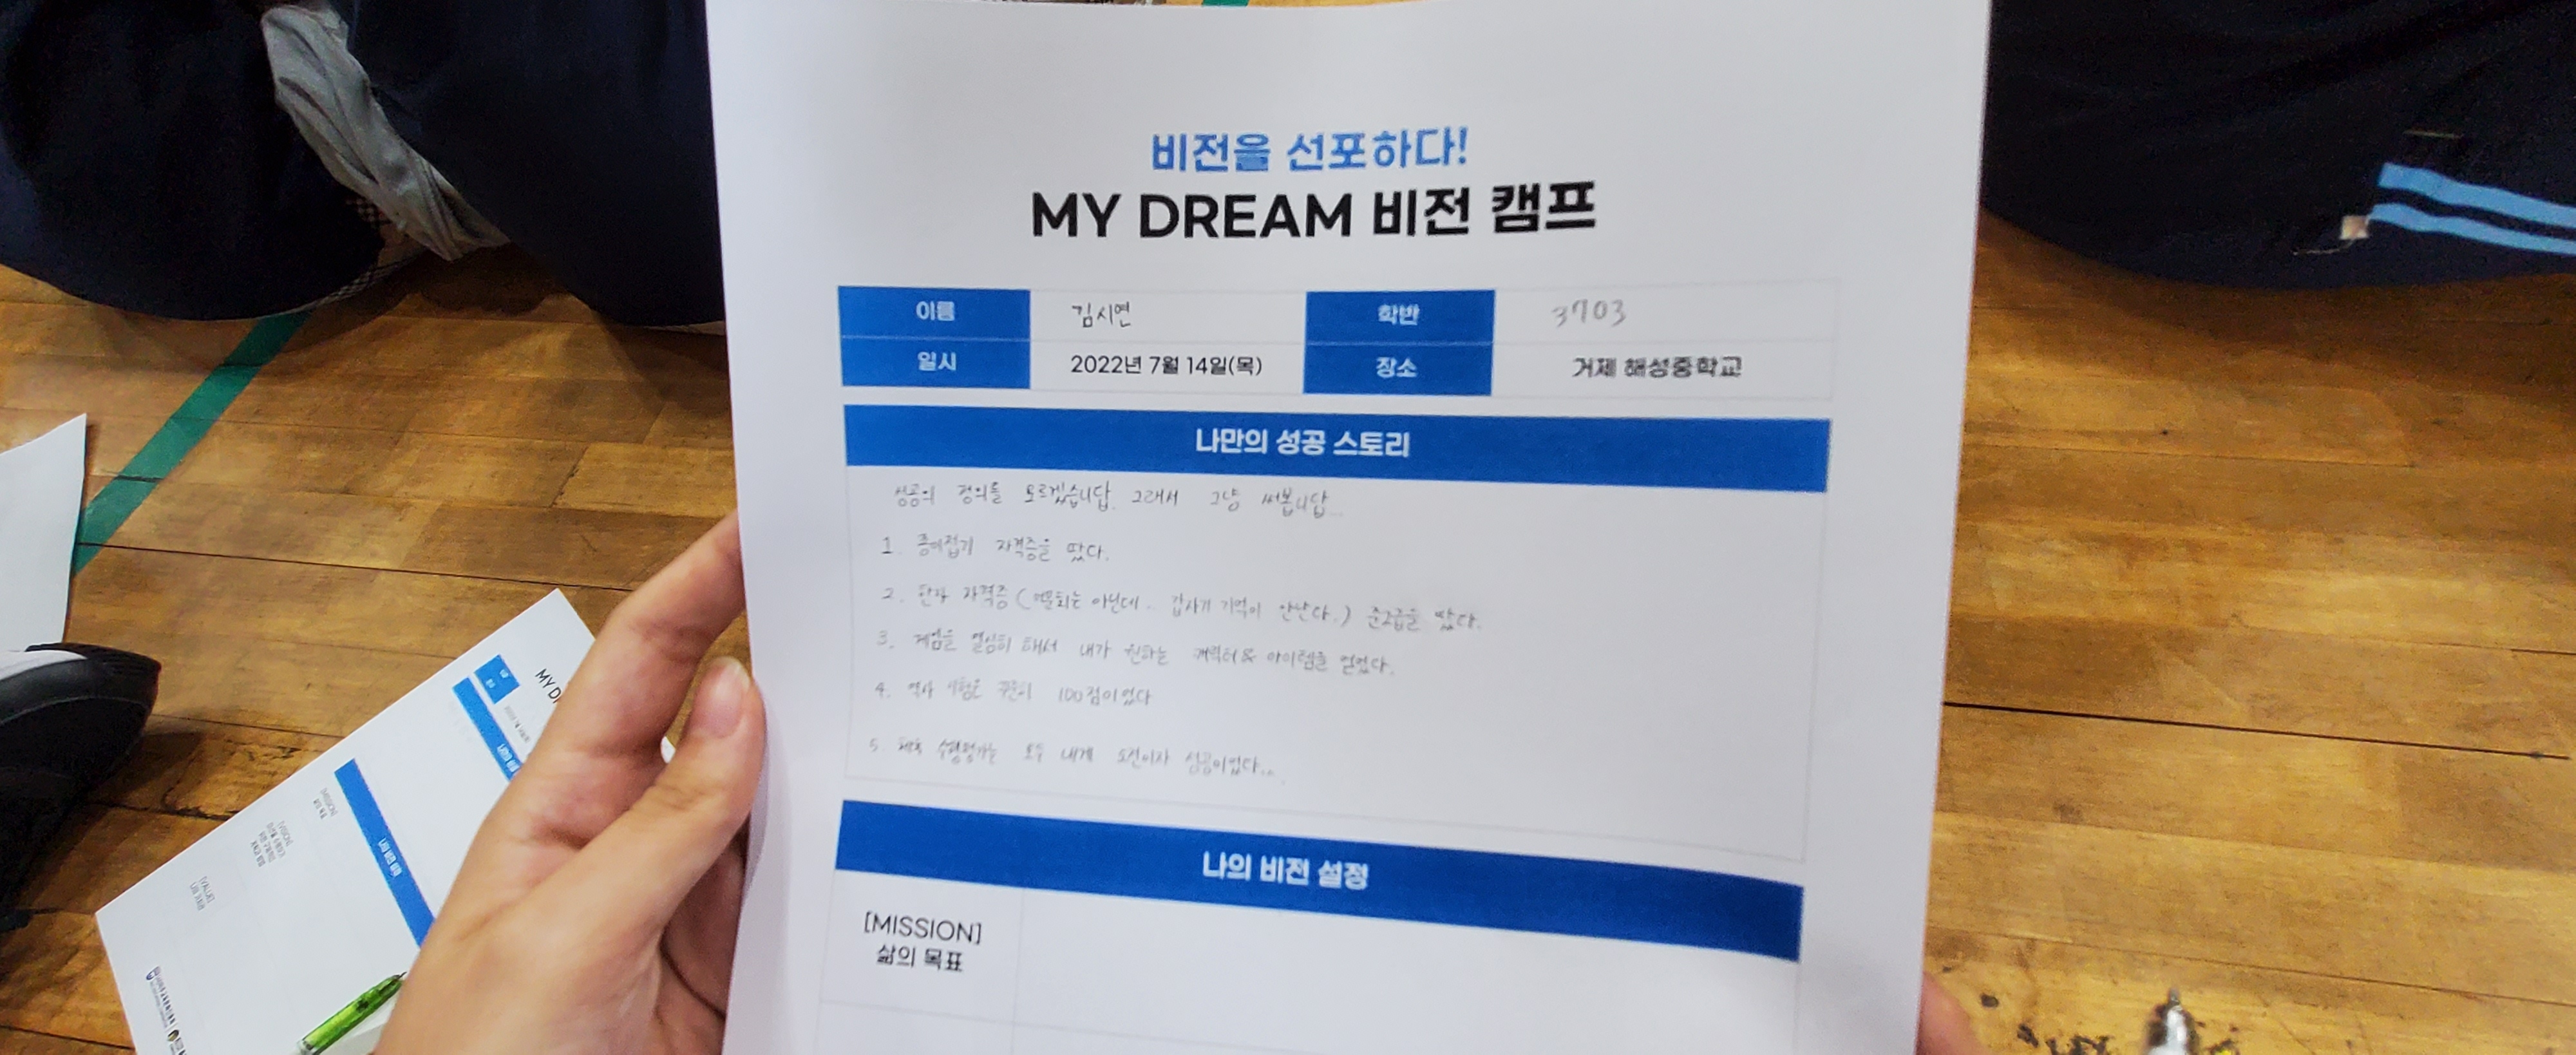 비전을 선포하다!
MY DREAM 비전 캠프
이름 김시연 학반 3703
일시 2022년 7월 14일(목) 장소 거제 해성중학교
나만의 성공 스토리
성공의 정의를 모르겠습니답. 그래서 그냥 써봅니답...
1. 종이접기 자격증을 땄다.
2. 한자 자격증 (는 아닌데. 갑자기 기억이 안난다.) 준2급을 땄다.
3. 게임을 열심히 해서 내가 원하는 캐릭터 & 아이템을 얻었다.
4. 역사 시험은 꾸준히 100점이었다
5 체육 수행평가는 모두 내게 도전이자 성공이었다...
나의 비전 설정
[MISSION]
삶의 목표
MY D